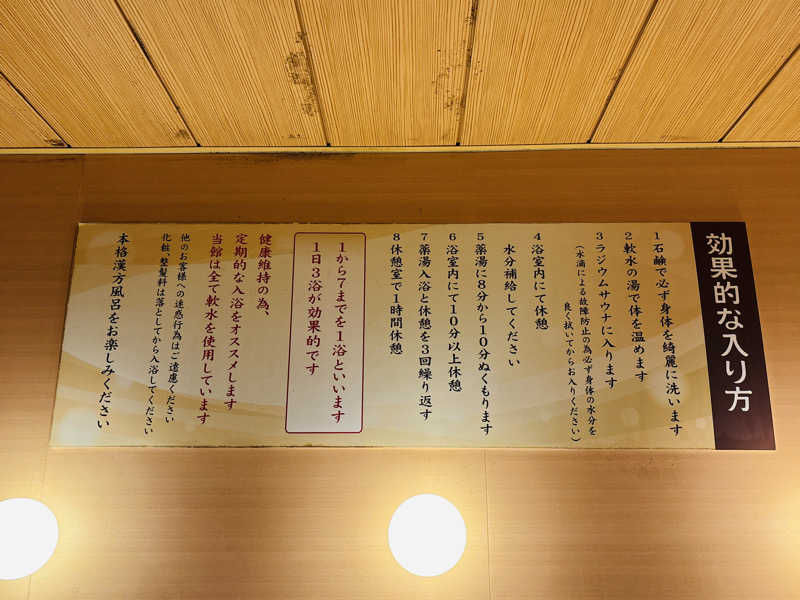 効果的な入り方
1 石鹸で必ず身体を綺麗に洗います
2 軟水の湯で体を温めます
3 ラジウムサウナに入ります
（水滴による故障防止の為必ず身体の水分を
良く拭いてからお入りください）
4 浴室内にて休憩
水分補給してください
5 薬湯に8分から10分ぬくもります
6 浴室内にて10分以上休憩
7 薬湯入浴と休憩を3回繰り返す
8 休憩室で1時間休憩
1から7までを1浴といいます
1日3浴が効果的です
健康維持の為、
定期的な入浴をオススメします
当館は全て軟水を使用しています
他のお客様への迷惑行為はご遠慮ください
化粧、整髪料は落としてから入浴してください
本格漢方風呂をお楽しみください